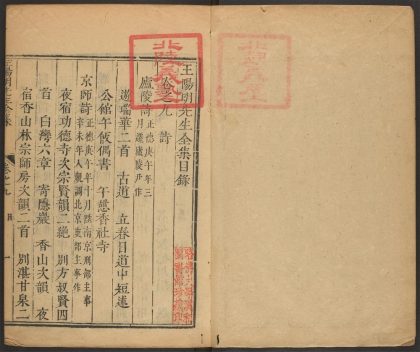 王陽明先生全集目錄
卷之九 詩
廬陵詩 正德庚午年三月遷廬陵尹作
遊瑞華二首 古道 立春日道中短述
公館午飯偶書 午憩香社寺
京師詩 正德庚午年十月陞南京刑部主事辛未年入覲調北京吏部主事作
夜宿功德寺次宗賢韻二絕 別方叔賢四
首 白灣六章 寄隱巖 香山次韻 夜
宿香山林宗師房次韻二首 別湛甘泉二